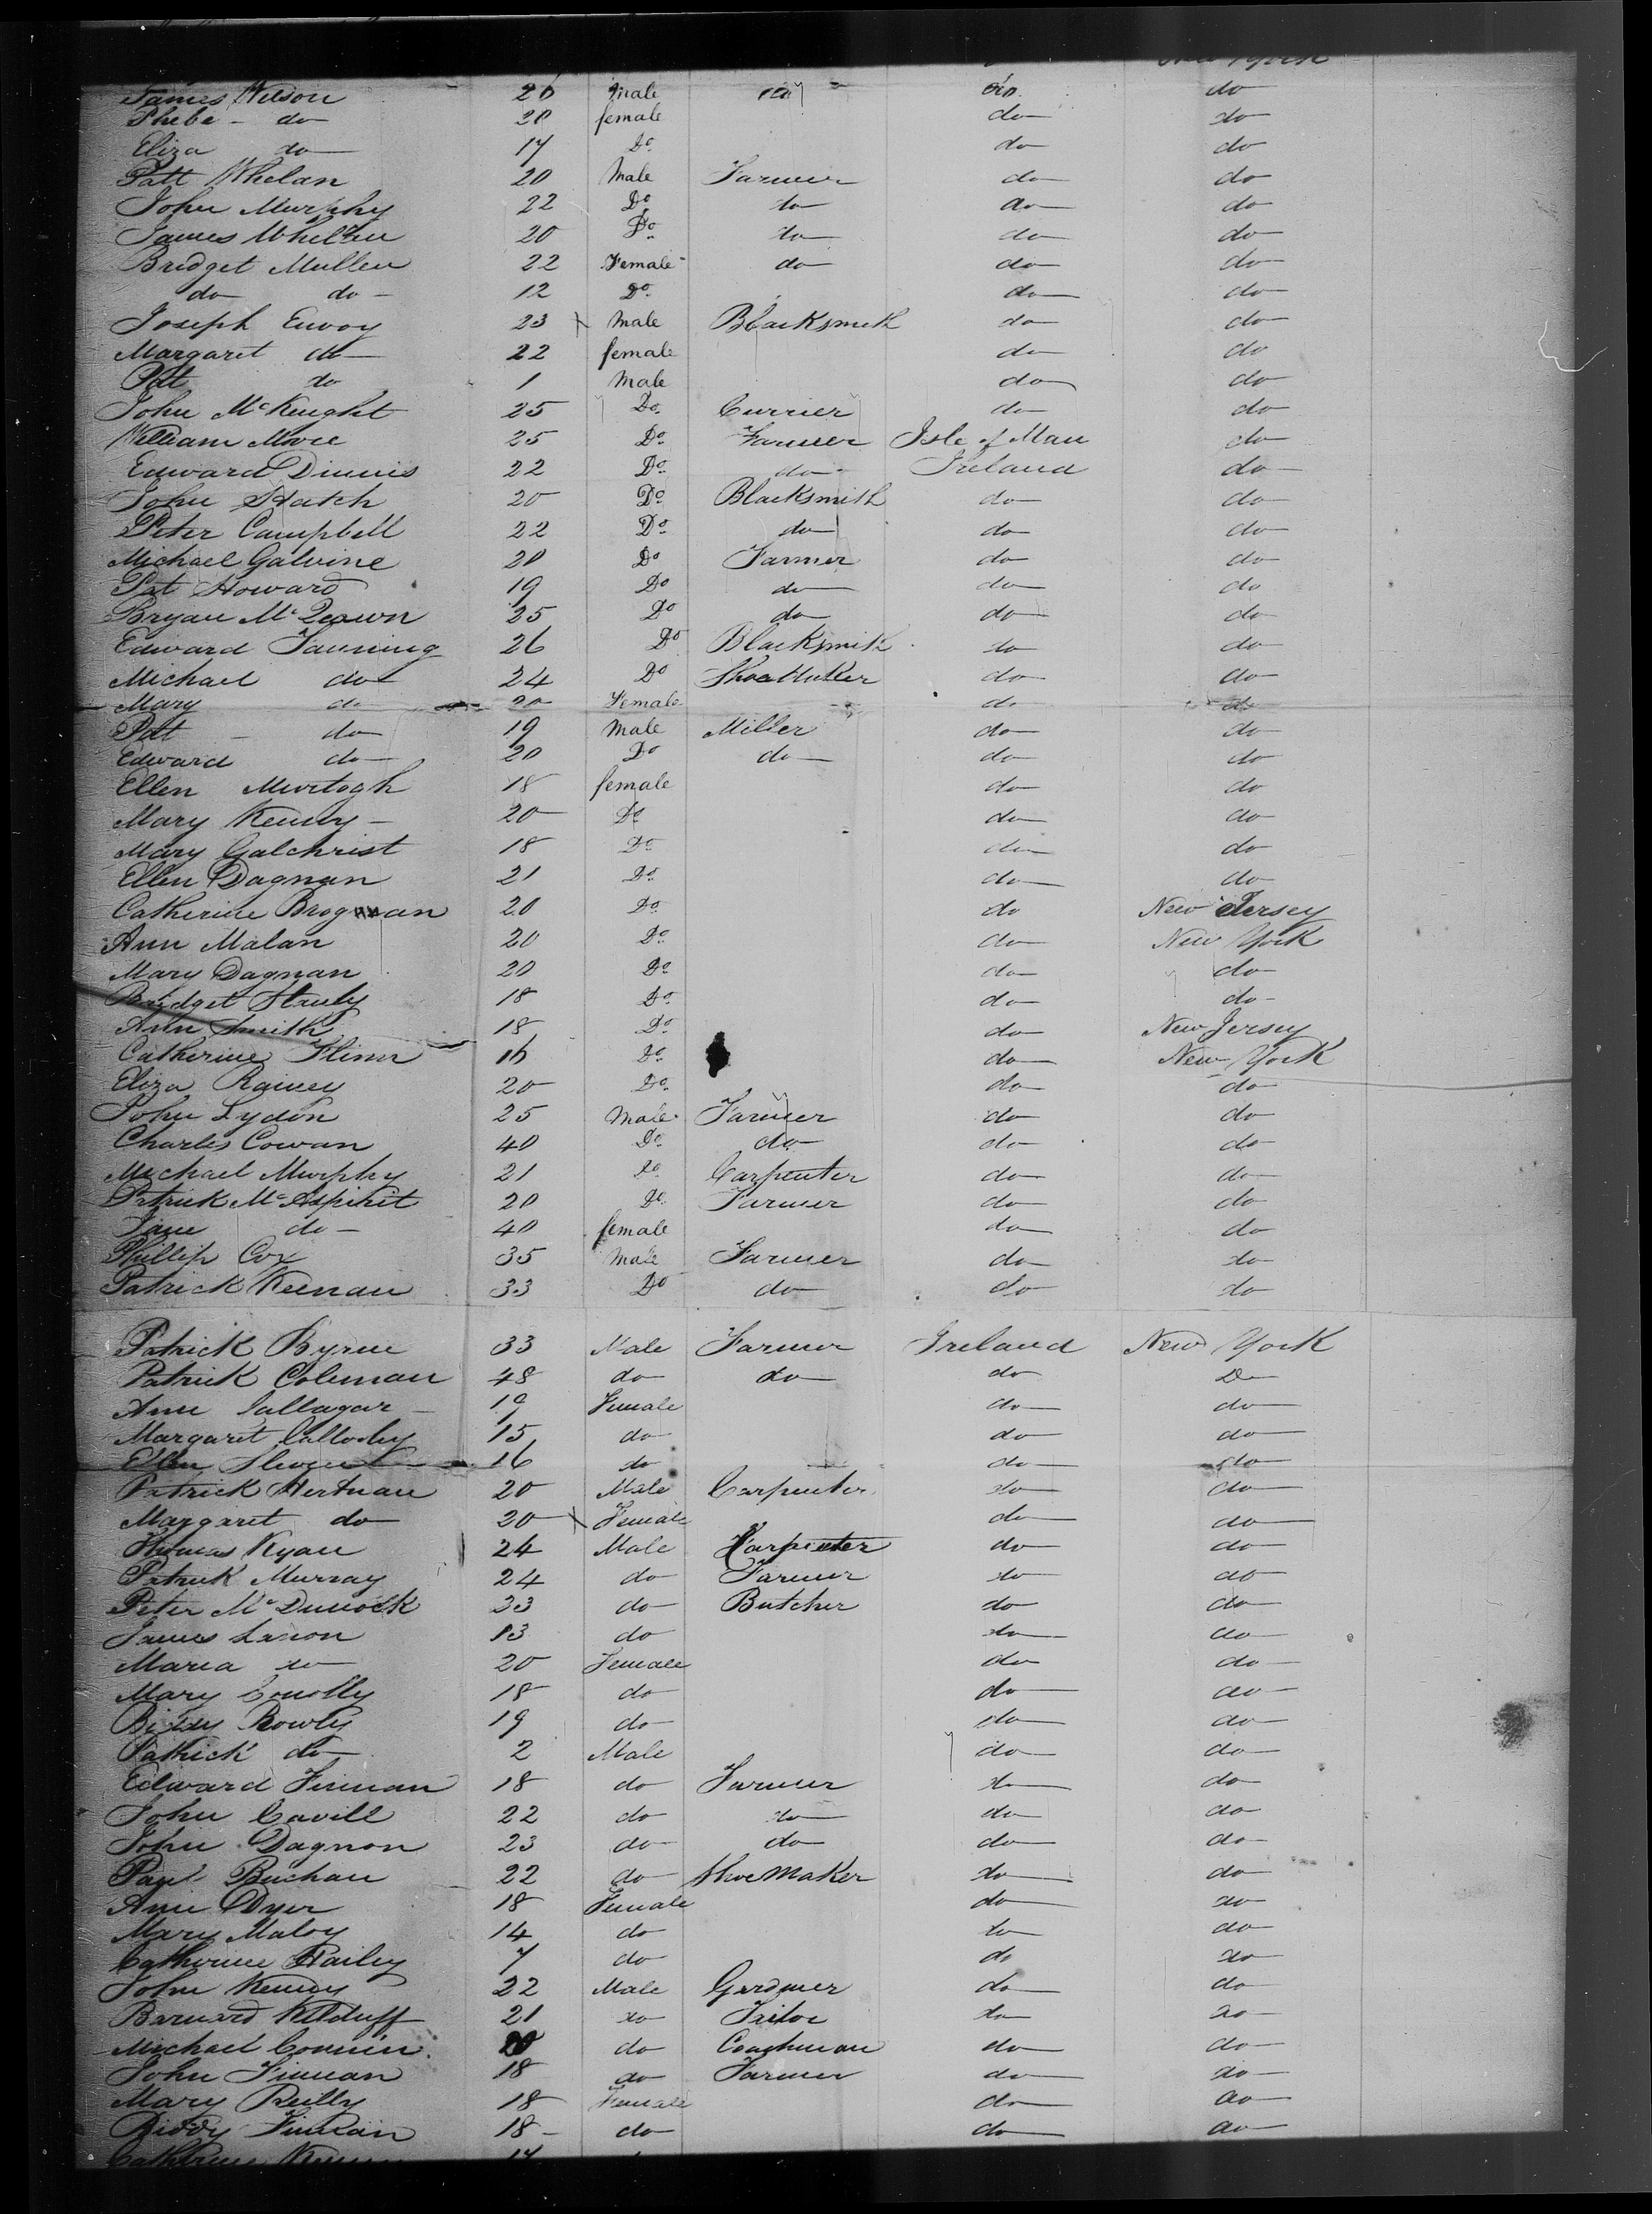 New York
James Wilson 26 Male do do
Phebe - do 20 female do do
Eliza do 17 Do do do
Patt Whelan 20 Male Farmer do do
John Murphy 22 Do do do do
James Whelan 20 Do do do do
Bridget Mullen 22 Female do do do
do do 12 Do do do
Joseph Envoy 23 Male Blacksmith do do
Margaret do 22 female do do
Pat do 1 Male do do
John McKnight 25 Do Currier do do
William Moore 25 Do Farmer Isle of Man do
Edward Dinnis 22 Do do Ireland do
John 20 Do Blacksmith do do
Peter Campbell 22 Do do do do
Michael Galvine 20 Do Farmer do do
Pat Howard 19 Do do do do
Bryan McQeown 25 Do do do do
Edward Fanning 26 Do Blacksmith do do
Michael do 24 Do ShoeMaker do do
Mary do 20 Female do do
Pat - do 19 Male Miller do do
Edward do 20 Do do do do
Ellen Murtogh 18 female do do
Mary Kenny 20 Do do do
Mary Galchrist 18 Do do do
Ellen Dagnan 21 Do do do
Catherine Brogan 20 Do do New Jersey
Ann Malan 20 Do do New York
Mary Dagnan 20 Do do do
Bridget 18 Do do do
Ann Smith 18 Do do New Jersey
Catherine Flinn 16 Do do New York
Eliza Rainey 20 Do do do
John Lydon 25 Male Farmer do do
Charles Cowan 40 Do do do do
Michael Murphy 21 Do Carpenter do do
Patrick McAspirit 20 Do Farmer do do
Jane do 40 female do do
Phillip Cox 35 Male Farmer do do
Patrick Keenan 33 Do do do do
Patrick Byrne 33 Male Farmer Ireland New York
Patrick Coleman 48 do do do Do
Ann Gallagar 19 Female do do
Margaret 15 do do do
Ellen 16 do do do
Patrick Hertnan 20 Male Carpenter do do
Margaret do 20 Female do do
Thomas Ryan 24 Male Carpenter do do
Patrick Murray 24 do Farmer do do
Peter 23 do Butcher do do
James Lanon 13 do do do
Maria do 20 Female do do
Mary Conolly 18 do do do
Biddy Rowly 19 do do do
Patrick do 2 Male do do
Edward Finnan 18 do Farmer do do
John Cavill 22 do do do do
John Dagnon 23 do do do do
Paul Buchan 22 do ShoeMaker do do
Ann Dyer 18 Female do do
Mary Maloy 14 do do do
Catherine 7 do do do
John Kenny 22 Male Gardner do do
Barnard Kilduff 21 do Tailor do do
Michael 20 do Coachman do do
John Finnan 18 do Farmer do do
Mary Reilly 18 Female do do
Biddy Finnan 18 do do do
Catherine 17